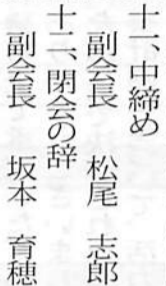 十一、中締め
副会長　松尾　志郎
十二、閉会の辞
副会長　坂本　育穂